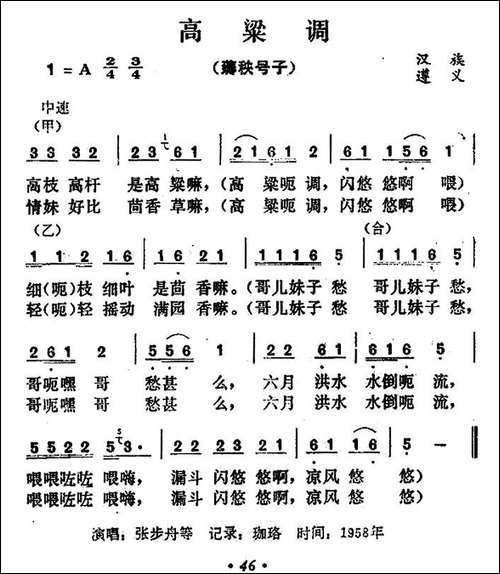 高粱调
1 = A 2/4 3/4 （薅秧号子） 汉族
遵义
中速
（甲）
3 3 3 2 | 2 3 6 1 | 2 1 6 1 2 | 6 1 1 5 6 1 |
高枝 高杆 是高 粱嘛，（高 粱呃 调，闪悠 悠啊 喂）
情妹 好比 茴香 草嘛，（高 粱呃 调，闪悠 悠啊 喂）
（乙） （合）
1 1 2 1 6 | 1 6 2 1 | 1 1 1 6 5 | 1 1 1 6 5 |
细（呃）枝 细叶 是茴 香嘛。（哥儿妹子 愁 哥儿妹子 愁，
轻（呃）轻 摇动 满园 香嘛。（哥儿妹子 愁 哥儿妹子 愁，
2 6 1 2 | 5 5 6 1 | 2 2 6 1 | 6 1 1 6 5 |
哥呃嘿 哥 愁甚 么，六月 洪水 水倒呃 流，
哥呃嘿 哥 愁甚 么，六月 洪水 水倒呃 流，
5 5 2 2 5 3· | 2 2 2 3 2 1 | 6 1 1 6 | 5 — ‖
喂喂咗咗 喂嗨， 漏斗 闪悠 悠啊，凉风 悠 悠）
喂喂咗咗 喂嗨， 漏斗 闪悠 悠啊，凉风 悠 悠）
演唱：张步舟等 记录：珈珞 时间：1958年
· 46 ·